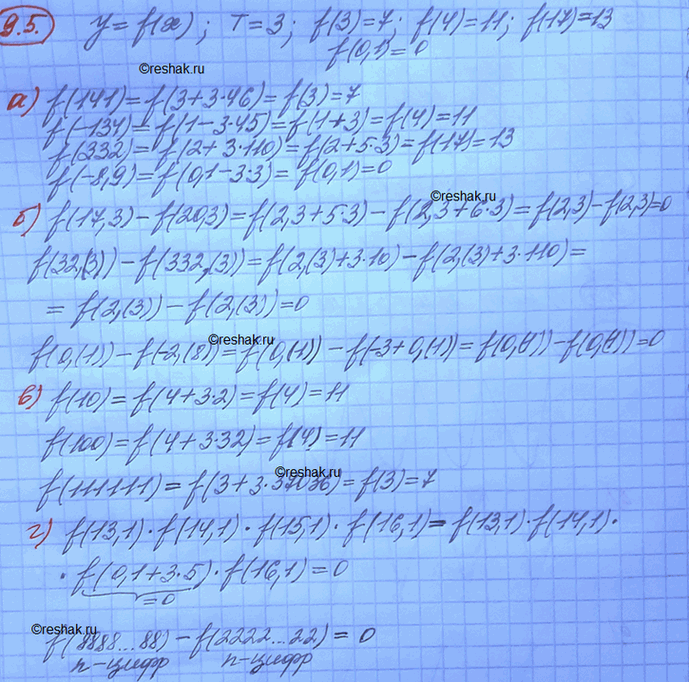 9.5. y = f(x); T = 3; f(3) = 7; f(4) = 11; f(17) = 13
f(0,1) = 0
©reshak.ru
а) f(141) = f(3 + 3·46) = f(3) = 7
f(-134) = f(1 - 3·45) = f(1 + 3) = f(4) = 11
f(332) = f(2 + 3·110) = f(2 + 5·3) = f(17) = 13
f(-8,9) = f(0,1 - 3·3) = f(0,1) = 0
©reshak.ru
б) f(17,3) - f(20,3) = f(2,3 + 5·3) - f(2,3 + 6·3) = f(2,3) - f(2,3) = 0
f(32,(3)) - f(332,(3)) = f(2,(3) + 3·10) - f(2,(3) + 3·110) =
= f(2,(3)) - f(2,(3)) = 0
©reshak.ru
f(0,(1)) - f(-2,(8)) = f(0,(1)) - f(-3 + 0,(1)) = f(0,(1)) - f(0,(1)) = 0
в) f(10) = f(4 + 3·2) = f(4) = 11
f(100) = f(4 + 3·32) = f(4) = 11
©reshak.ru
f(111111) = f(3 + 3·37036) = f(3) = 7
г) f(13,1) · f(14,1) · f(15,1) · f(16,1) = f(13,1) · f(14,1) ·
· f(0,1 + 3·5) · f(16,1) = 0
= 0
©reshak.ru
f(8888...88) - f(2222...22) = 0
n-цифр n-цифр